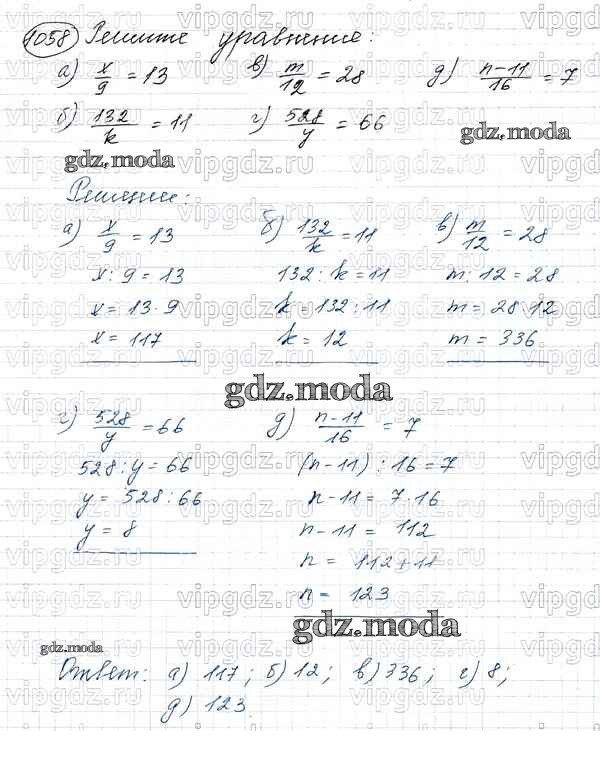 1058 Решите уравнение:
а) x/9 = 13 в) m/12 = 28 д) n-11/16 = 7
б) 132/k = 11 г) 528/y = 66
gdz.moda
gdz.moda
Решение:
а) x/9 = 13 б) 132/k = 11 в) m/12 = 28
x : 9 = 13 132 : k = 11 m : 12 = 28
x = 13 · 9 k = 132 : 11 m = 28 · 12
x = 117 k = 12 m = 336
gdz.moda
г) 528/y = 66 д) n-11/16 = 7
528 : y = 66 (n-11) : 16 = 7
y = 528 : 66 n-11 = 7 · 16
y = 8 n-11 = 112
n = 112+11
n = 123
gdz.moda
gdz.moda
Ответ: а) 117; б) 12; в) 336; г) 8;
д) 123.
vipgdz.ru